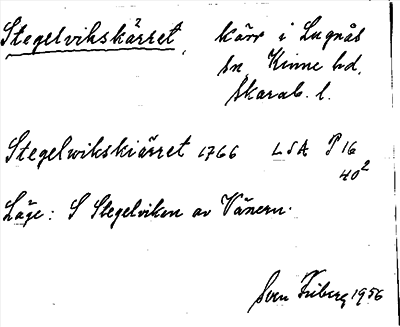 Stegelvikskärret, kärr i Lugnås
sn, Kinne hd,
Skarab. l.
Stegelwikskiärret 1766 LSA P 16
40²
Läge: S Stegelviken av Vänern.
Sven Friberg 1956